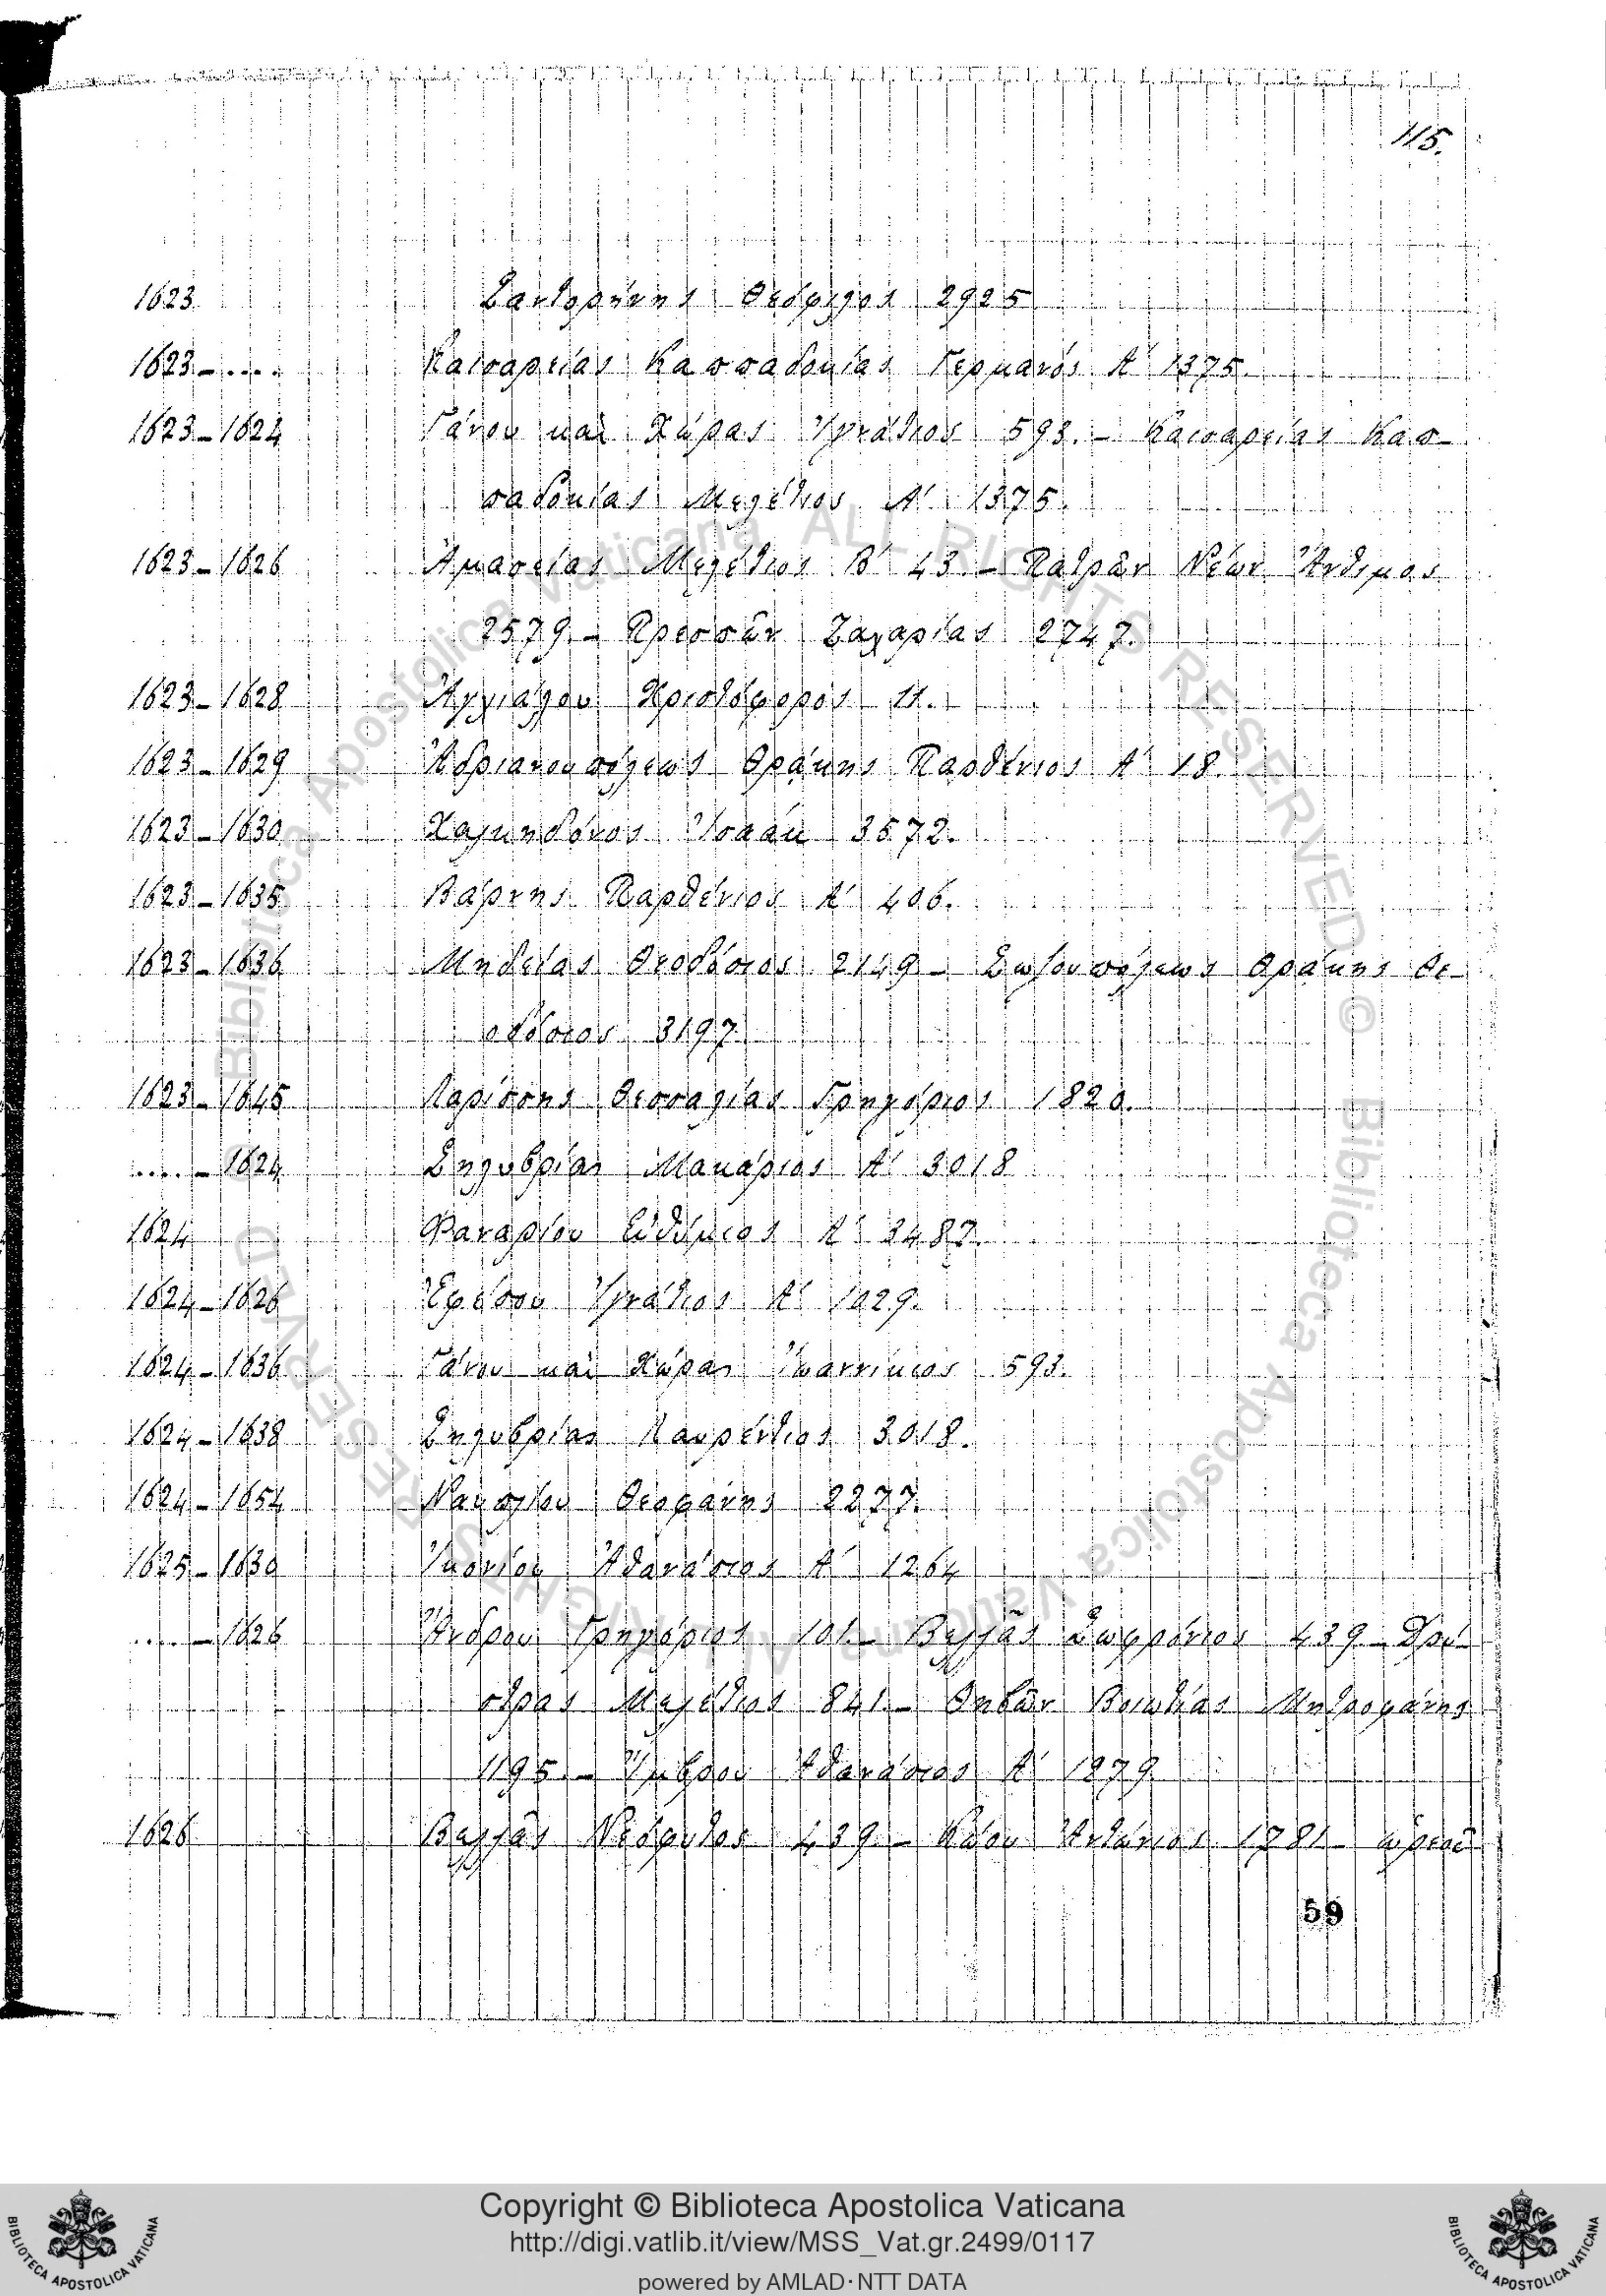 115.
1623 Σαντορήνης Θεόφιλος 2925
1623 - .... Καισαρείας Καππαδοκίας Γερμανός Α' 1375.
1623 - 1624 Γάνου καὶ Χώρας Ἰγνάτιος 593. - Καισαρείας Καπ-
παδοκίας Μελέτιος Α' 1375.
1623 - 1626 Ἀμασείας Μελέτιος Β' 43. - Πατρῶν Νέων Ἄνθιμος
2579. - Πρεσπῶν Ζαχαρίας 2747.
1623 - 1628 Ἀγχιάλου Χριστόφορος 11.
1623 - 1629 Ἀδριανουπόλεως Θράκης Παρθένιος Α' 18.
1623 - 1630 Χαλκηδόνος Ἰσαάκ 3572.
1623 - 1635 Βάρνης Παρθένιος Α' 406.
1623 - 1636 Μηδείας Θεοδόσιος 2149 - Σωζουπόλεως Θράκης Θε-
οδόσιος 3197.
1623 - 1645 Λαρίσσης Θεσσαλίας Γρηγόριος 1820.
.... - 1624 Σηλυβρίας Μακάριος Α' 3018
1624 Φαναρίου Εὐθύμιος Α' 3487.
1624 - 1626 Ἐφέσου Ἰγνάτιος Α' 1029.
1624 - 1636 Γάνου καὶ Χώρας Ἰωαννίκιος 593.
1624 - 1638 Σηλυβρίας Λαυρέντιος 3018.
1624 - 1654 Ναυπλίου Θεοφάνης 2277.
1625 - 1630 Ἰκονίου Ἀθανάσιος Α' 1264
.... - 1626 Ἄνδρου Γρηγόριος 101. - Βελλᾶς Σωφρόνιος 439 - Δρύ-
στρας Μελέτιος 841. - Θηβῶν Βοιωτίας Μητροφάνης
1195. - Ἴμβρου Ἀθανάσιος Α' 1279
1626 Βελλᾶς Νεόφυτος 439. - Κώου Ἀντώνιος 1781
59
Copyright © Biblioteca Apostolica Vaticana
http://digi.vatlib.it/view/MSS_Vat.gr.2499/0117
powered by AMLAD·NTT DATA
BIBLIOTECA APOSTOLICA VATICANA
BIBLIOTECA APOSTOLICA VATICANA